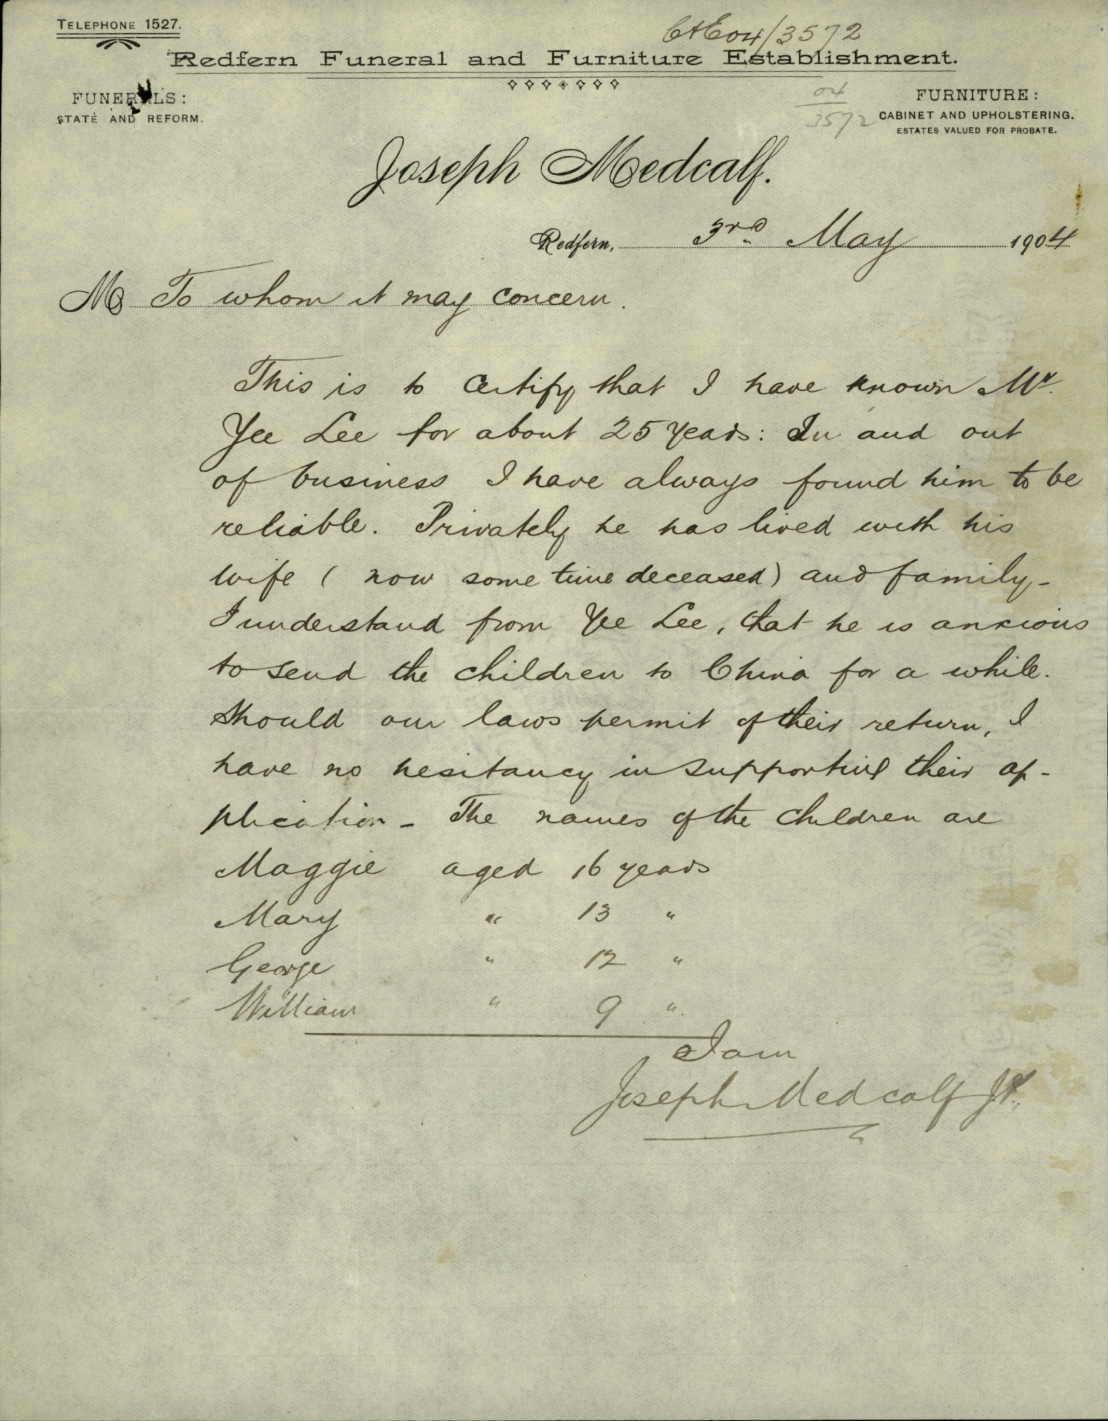 TELEPHONE 1527.
C+E04/3572
Redfern Funeral and Furniture Establishment.
FUNERALS:
STATE AND REFORM.
04
3572
FURNITURE:
CABINET AND UPHOLSTERING.
ESTATES VALUED FOR PROBATE.
Joseph Medcalf.
Redfern, 3rd May 1904
M To whom it may concern.
This is to certify that I have known Mr.
Yee Lee for about 25 years: In and out
of business I have always found him to be
reliable. Privately he has lived with his
wife (now some time deceased) and family-
I understand from Yee Lee, that he is anxious
to send the children to China for a while.
Should our laws permit of their return, I
have no hesitancy in supporting their ap-
plication - The names of the children are
Maggie aged 16 years
Mary " 13 "
George " 12 "
William " 9 "
I am
Joseph Medcalf JP.